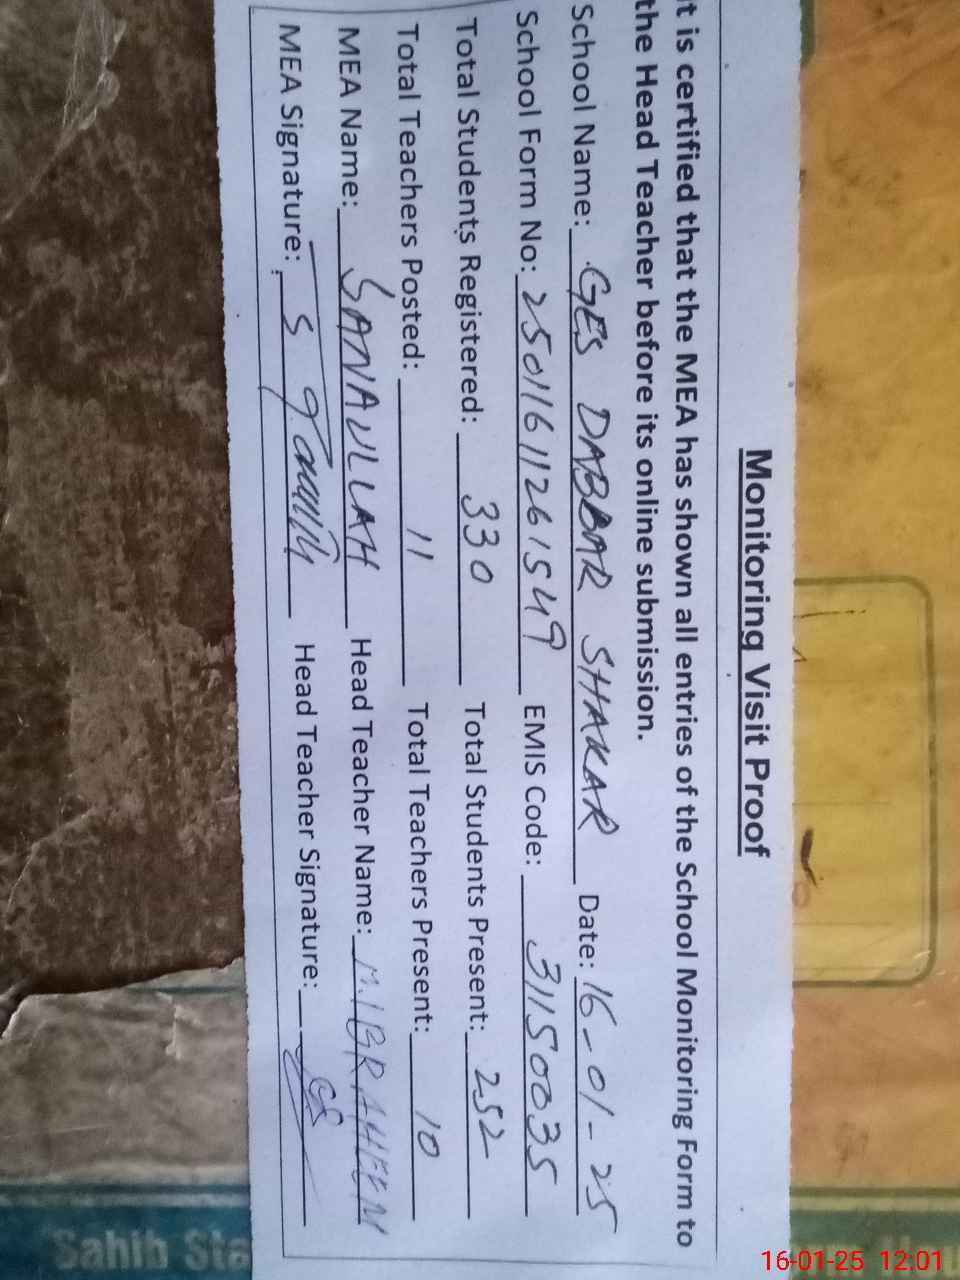 Monitoring Visit Proof
It is certified that the MEA has shown all entries of the School Monitoring Form to
the Head Teacher before its online submission.
School Name: GES DABBAR SHAKAR Date: 16-01-25
School Form No: 25011611261549 EMIS Code: 31150035
Total Students Registered: 330 Total Students Present: 252
Total Teachers Posted: 11 Total Teachers Present: 10
MEA Name: SANAULLAH Head Teacher Name: M.IBRAHEEM
MEA Signature: Head Teacher Signature:
Sahib Sta
16-01-25 12:01